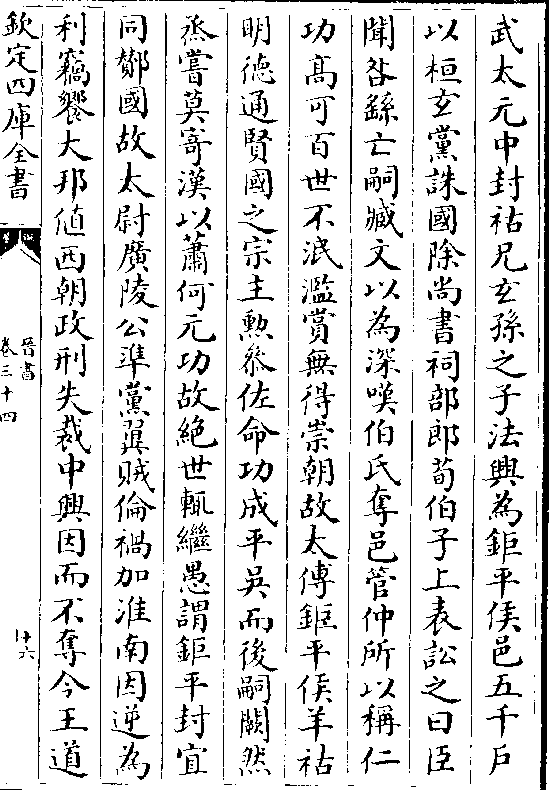 武太元中封祜兄玄孫之子法興為鉅平侯邑五千戶
以桓玄黨誅國除尚書祠部郎荀伯子上表訟之曰臣
聞咎繇亡嗣臧文以為深嘆伯氏奪邑管仲所以稱仁
功髙可百世不泯濫賞無得崇朝故太傅鉅平侯羊祜
明德通賢國之宗主勲叅佐命功成平吳而後嗣闕然
烝嘗莫寄漢以蕭何元功故絶世輒繼愚謂鉅平封宜
同鄼國故太尉廣陵公準黨翼賊倫禍加淮南因逆為
利竊饗大邦值西朝政刑失裁中興因而不奪今王道
欽定四庫全書
晉書
卷三十四
十六